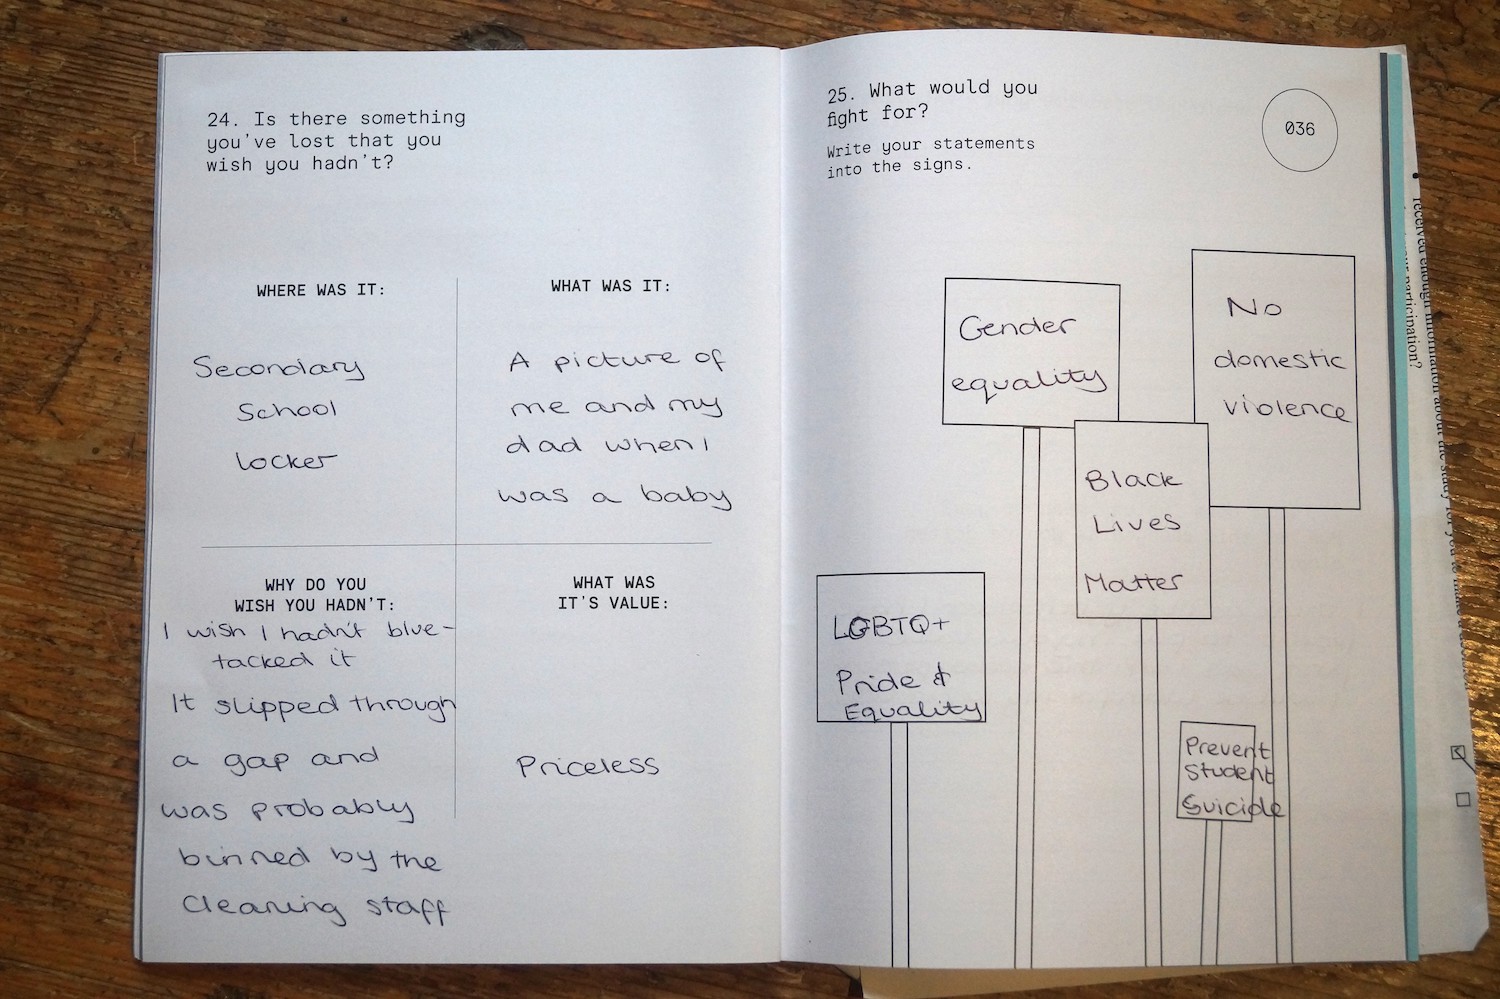 24. Is there something
you've lost that you
wish you hadn't?
WHERE WAS IT:
Secondary
School
locker
WHAT WAS IT:
A picture of
me and my
dad when I
was a baby
WHY DO YOU
WISH YOU HADN'T:
I wish I hadn't blue-
tacked it
It slipped through
a gap and
was probably
binned by the
cleaning staff
WHAT WAS
IT'S VALUE:
Priceless
25. What would you
fight for?
Write your statements
into the signs.
036
Gender
equality
No
domestic
violence
Black
Lives
Matter
LGBTQ+
Pride &
Equality
Prevent
Student
Suicide
received enough information about the study for you to make
participation?